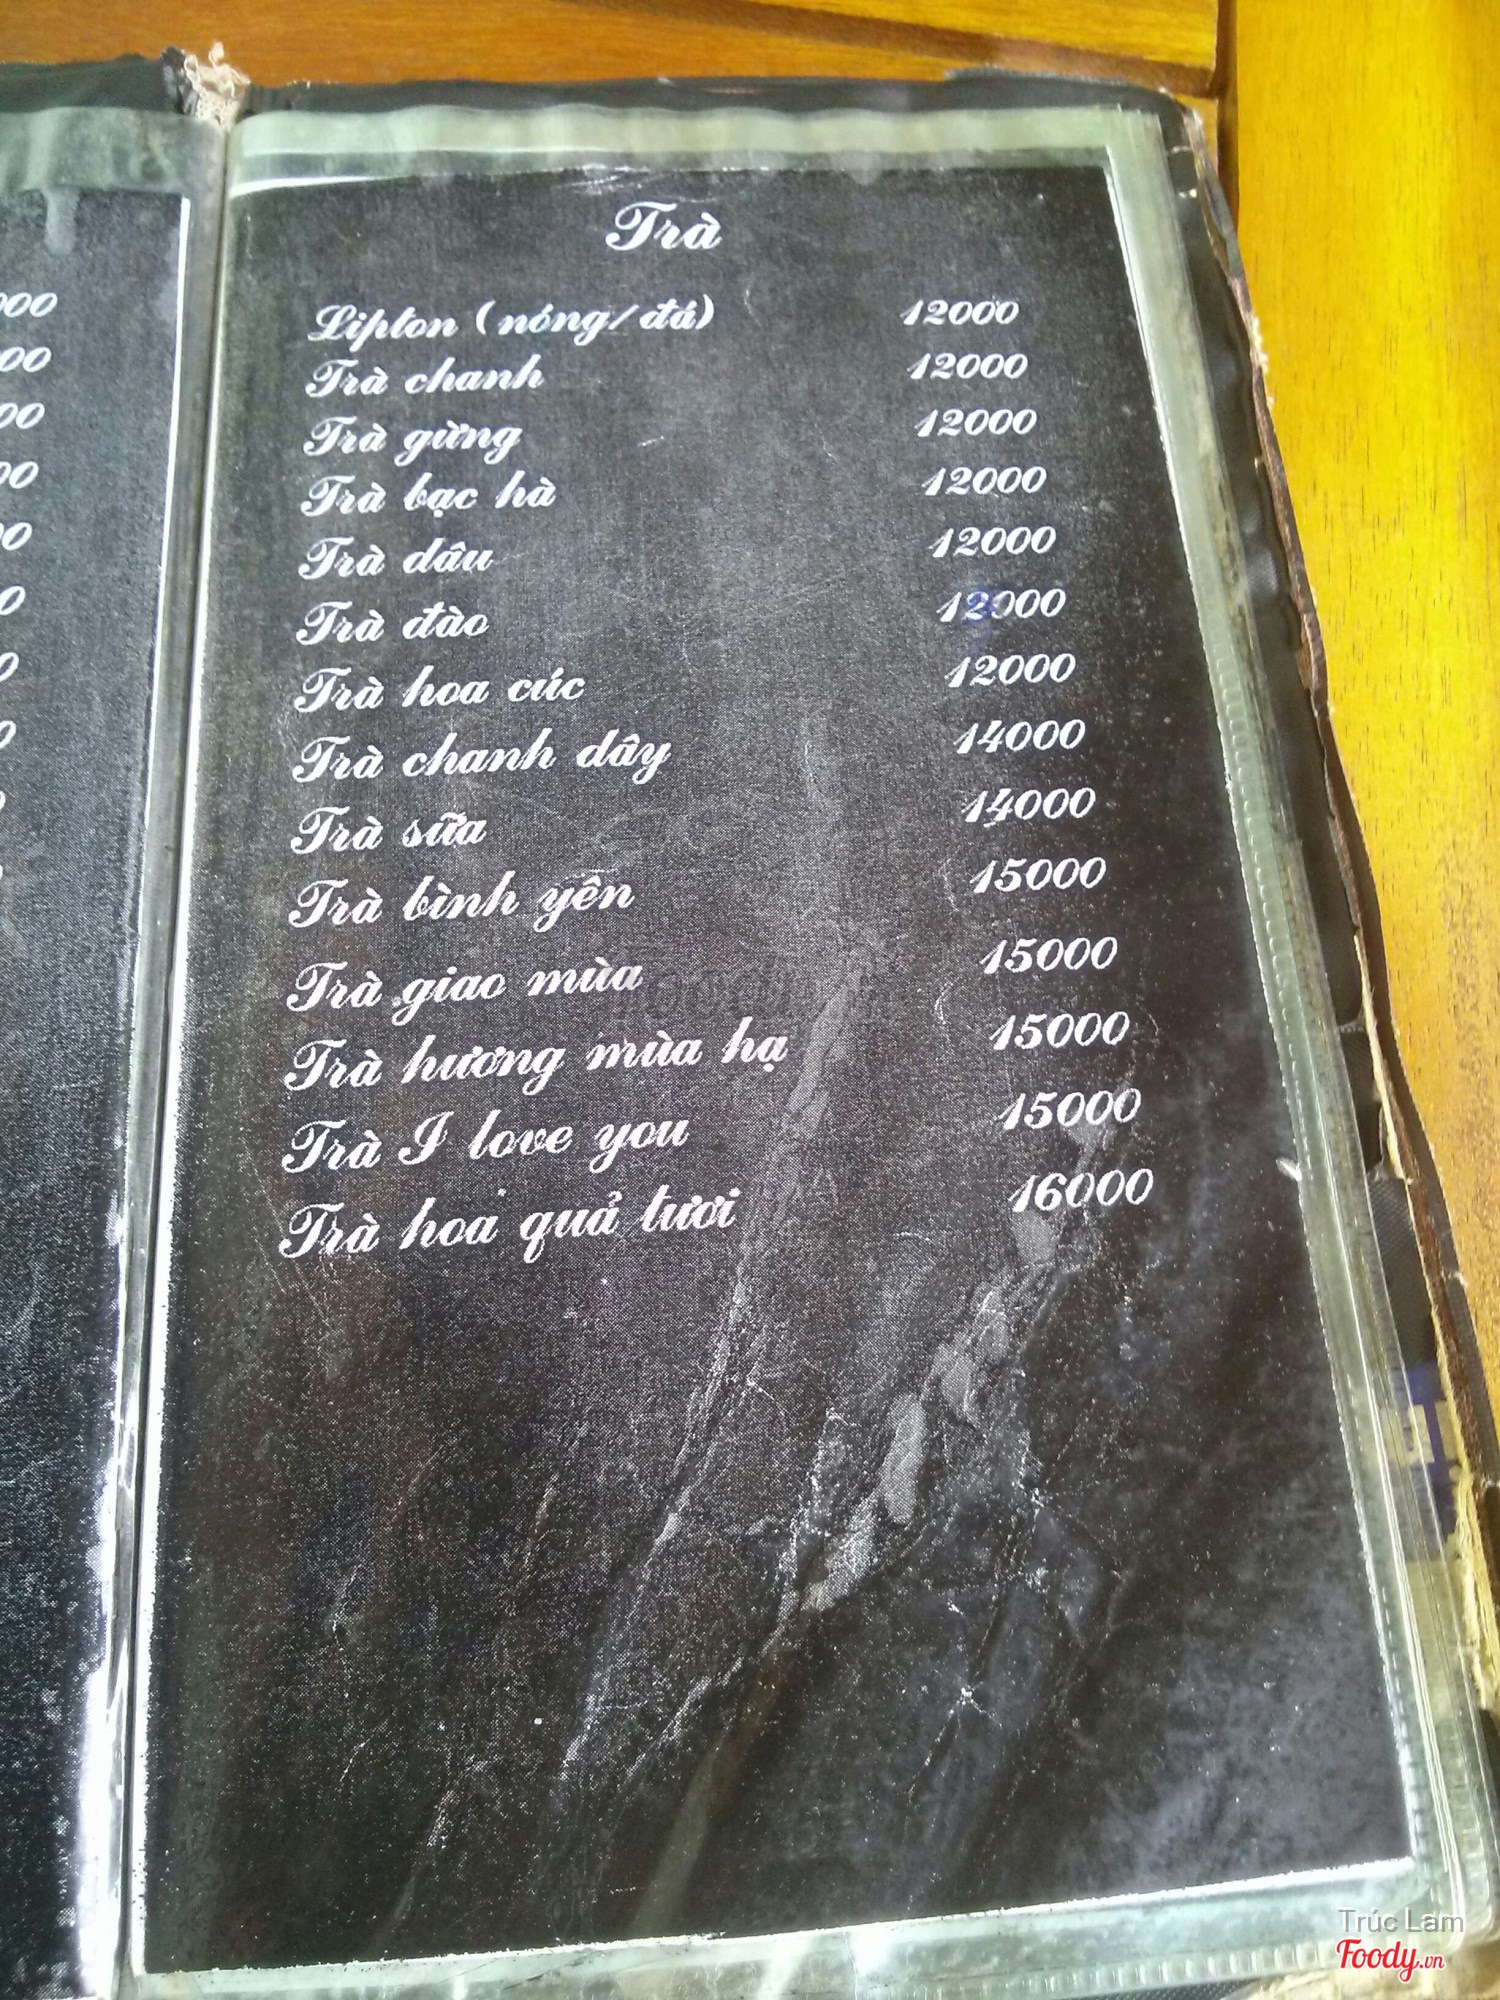 Trà
Lipton (nóng/đá) 12000
Trà chanh 12000
Trà gừng 12000
Trà bạc hà 12000
Trà dâu 12000
Trà đào 12000
Trà hoa cúc 12000
Trà chanh dây 14000
Trà sữa 14000
Trà bình yên 15000
Trà giao mùa 15000
Trà hương mùa hạ 15000
Trà I love you 15000
Trà hoa quả tươi 16000
Trúc Lam
Foody.vn